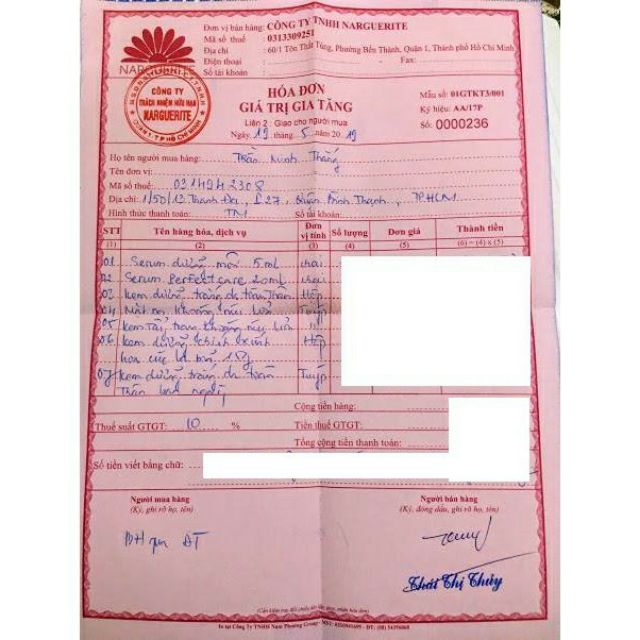 NARGUERITE
CÔNG TY
TRÁCH NHIỆM HỮU HẠN
NARGUERITE
Đơn vị bán hàng: CÔNG TY TNHH NARGUERITE
Mã số thuế : 0313309251
Địa chỉ : 60/1 Tôn Thất Tùng, Phường Bến Thành, Quận 1, Thành phố Hồ Chí Minh
Điện thoại : Fax:
Số tài khoản:
HÓA ĐƠN
GIÁ TRỊ GIA TĂNG
Liên 2: Giao cho người mua
Ngày 19 tháng 5 năm 2019
Mẫu số: 01GTKT3/001
Ký hiệu: AA/17P
Số: 0000236
Họ tên người mua hàng: Trần Minh Thắng
Tên đơn vị:
Mã số thuế: 0314942308
Địa chỉ: 1/50/12 Thanh Đa, P.27, Quận Bình Thạnh, TPHCM
Hình thức thanh toán: TM Số tài khoản:
STT Tên hàng hóa, dịch vụ Đơn vị tính Số lượng Đơn giá Thành tiền
(1) (2) (3) (4) (5) (6) = (4) x (5)
01 Serum dưỡng môi 5ml chai
02 Serum Perfect care 20ml chai
03 Kem dưỡng trắng da toàn thân Hộp
04 Mặt nạ khoáng núi lửa Tuýp
05 Kem Tẩy trang khoáng núi lửa
06 Kem dưỡng Hộp
hoa cúc 15g
07 Kem dưỡng trắng da toàn Tuýp
Thân
Cộng tiền hàng:
Thuế suất GTGT: 10 % Tiền thuế GTGT:
Tổng cộng tiền thanh toán:
Số tiền viết bằng chữ:
Người mua hàng
(Ký, ghi rõ họ, tên)
Người bán hàng
(Ký, đóng dấu, ghi rõ họ, tên)
BH qua ĐT
Thái Thị Thủy
(Cần kiểm tra, đối chiếu khi lập, giao, nhận hóa đơn)